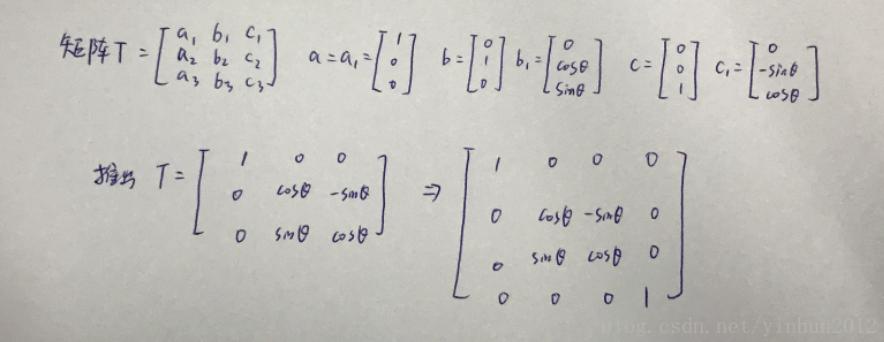 矩阵T = [a₁ b₁ c₁; a₂ b₂ c₂; a₃ b₃ c₃] a = a₁ = [1; 0; 0] b = [0; 1; 0] b₁ = [0; cosθ; sinθ] c = [0; 0; 1] c₁ = [0; -sinθ; cosθ]
推出 T = [1 0 0; 0 cosθ -sinθ; 0 sinθ cosθ] ⇒ [1 0 0 0; 0 cosθ -sinθ 0; 0 sinθ cosθ 0; 0 0 0 1]
blog.csdn.net/yinhun2012